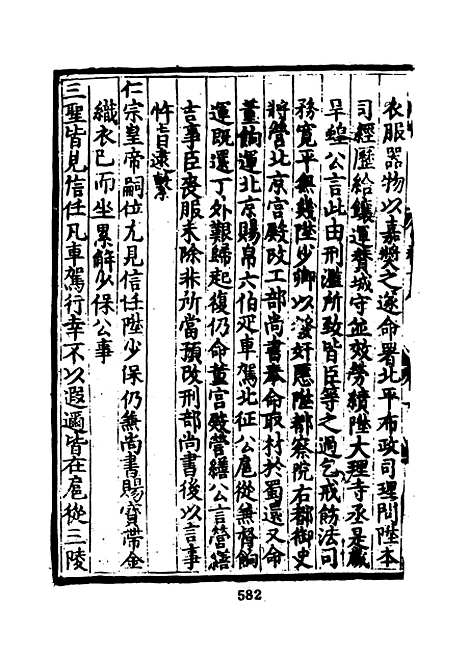 衣服器物以嘉奬之遂命署北平布政司理問陞本
司經歷給饟運賛城守並效勞績陞大理寺丞是歲
旱蝗公言此由刑濫所致皆臣等之過乞戒飭法司
務寬平無幾陞少卿以遘奸慝陞都察院右都御史
將營北京宮殿改工部尚書奉命取材於蜀還又命
董餉運北京賜帛六伯疋車駕北征公扈從兼督餉
運既還丁外艱歸起復仍命董宮殿營繕公言營繕
吉事臣喪服未除非所當預改刑部尚書後以言事
忤旨逮繫
仁宗皇帝嗣位尤見信任陞少保仍兼尚書賜寶帶金
織衣已而坐累解少保公事
三聖皆見信任凡車駕行幸不以遐邇皆在扈從三陵
582